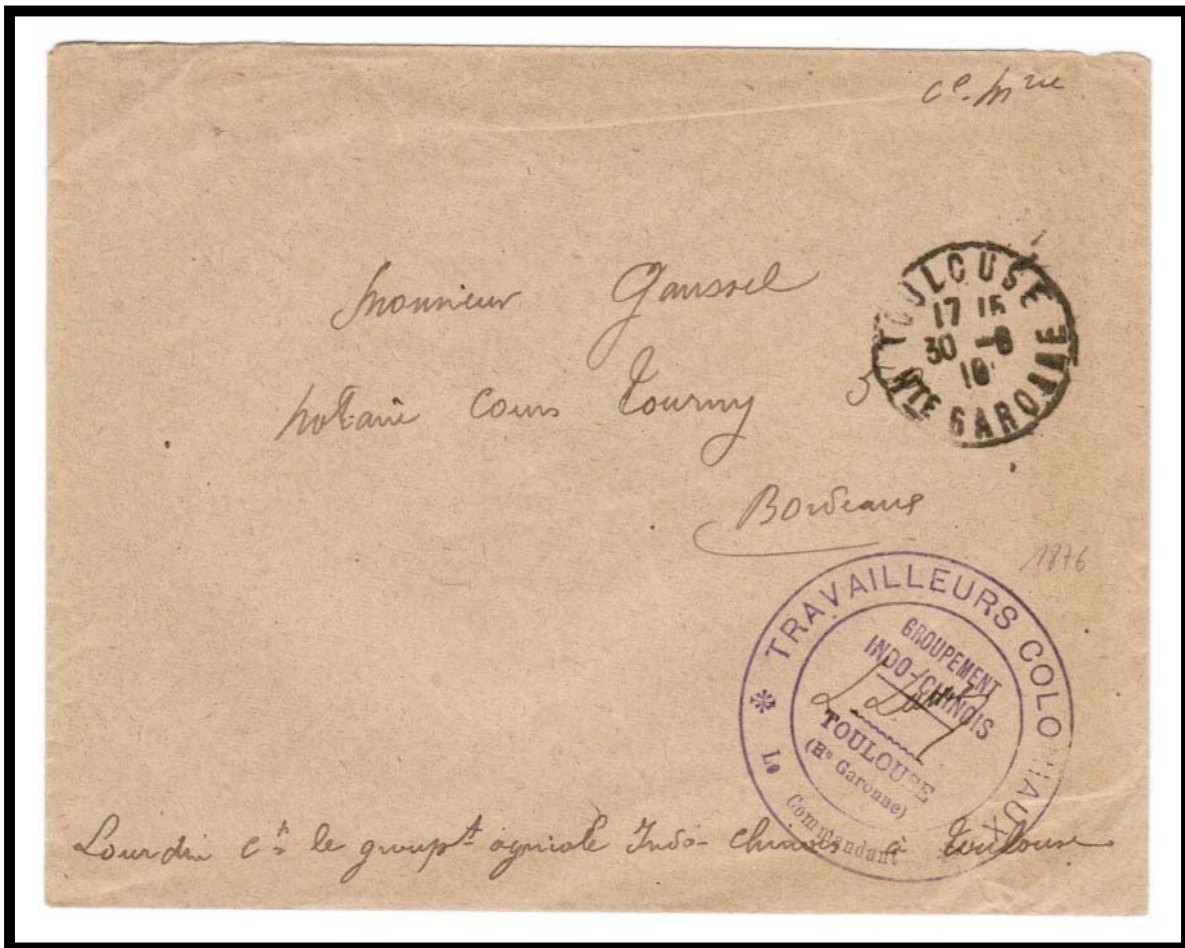 Ce. Mre
Monsieur Gaussel
notaire Cours Tourny 5
Bordeaux
TOULOUSE
17 15
30 -8
18
HTE GARONNE
1876
TRAVAILLEURS COLONIAUX
GROUPEMENT
INDO-CHINOIS
TOULOUSE
(Hte Garonne)
Le Commandant
Lourdin Ct le groupt agricole Indo-chinois à Toulouse